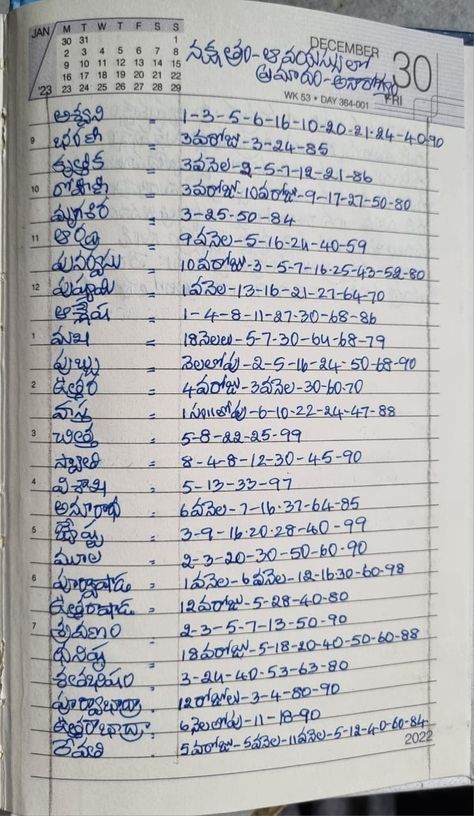 JAN M T W T F S S
30 31 1
2 3 4 5 6 7 8
9 10 11 12 13 14 15
16 17 18 19 20 21 22
'23 23 24 25 26 27 28 29
DECEMBER 30
WK 53 • DAY 364-001 FRI
నక్షత్రం-ఆ వయస్సులో
ప్రమాదం-అనారోగ్యం
అశ్వని = 1-3-5-6-16-10-20-21-24-40-90
9 భరణి = 3వరోజు-3-24-85
కృత్తిక = 3వనెల-2-5-7-12-21-86
10 రోహిణి = 3వరోజు-10వరోజు-9-17-27-50-80
మృగశిర = 3-25-50-84
11 ఆరుద్ర = 9వనెల-5-16-24-40-59
పునర్వసు = 10వరోజు-3-5-7-16-25-43-52-80
12 పుష్యమి = 1వనెల-13-16-21-27-64-70
ఆశ్లేష = 1-4-8-11-27-30-68-86
1 మఖ = 18నెలలు-5-7-30-64-68-79
పుబ్బ = నెలలోపు-2-5-16-24-50-68-90
2 ఉత్తర = 4వరోజు-3వనెల-30-60-70
హస్త = 1సం॥లోపు-6-10-22-24-47-88
3 చిత్త = 5-8-22-25-99
స్వాతి = 8-4-8-12-30-45-90
4 విశాఖ = 5-13-33-97
అనూరాధ = 6వనెల-7-16-37-64-85
5 జ్యేష్ఠ = 3-9-16-20-28-40-99
మూల = 2-3-20-30-50-60-90
6 పూర్వాషాడ = 1వనెల-6వనెల-12-16-30-60-98
ఉత్తరాషాడ = 12వరోజు-5-28-40-80
7 శ్రవణం = 2-3-5-7-13-50-90
ధనిష్ఠ = 18వరోజు-5-18-20-40-50-60-88
శతభిషం = 3-24-40-53-63-80
పూర్వాభాద్ర = 12రోజులు-3-4-80-90
ఉత్తరాభాద్ర = 6నెలలోపు-11-18-90
రేవతి = 5వరోజు-5వనెల-11వనెల-5-12-40-60-84
2022